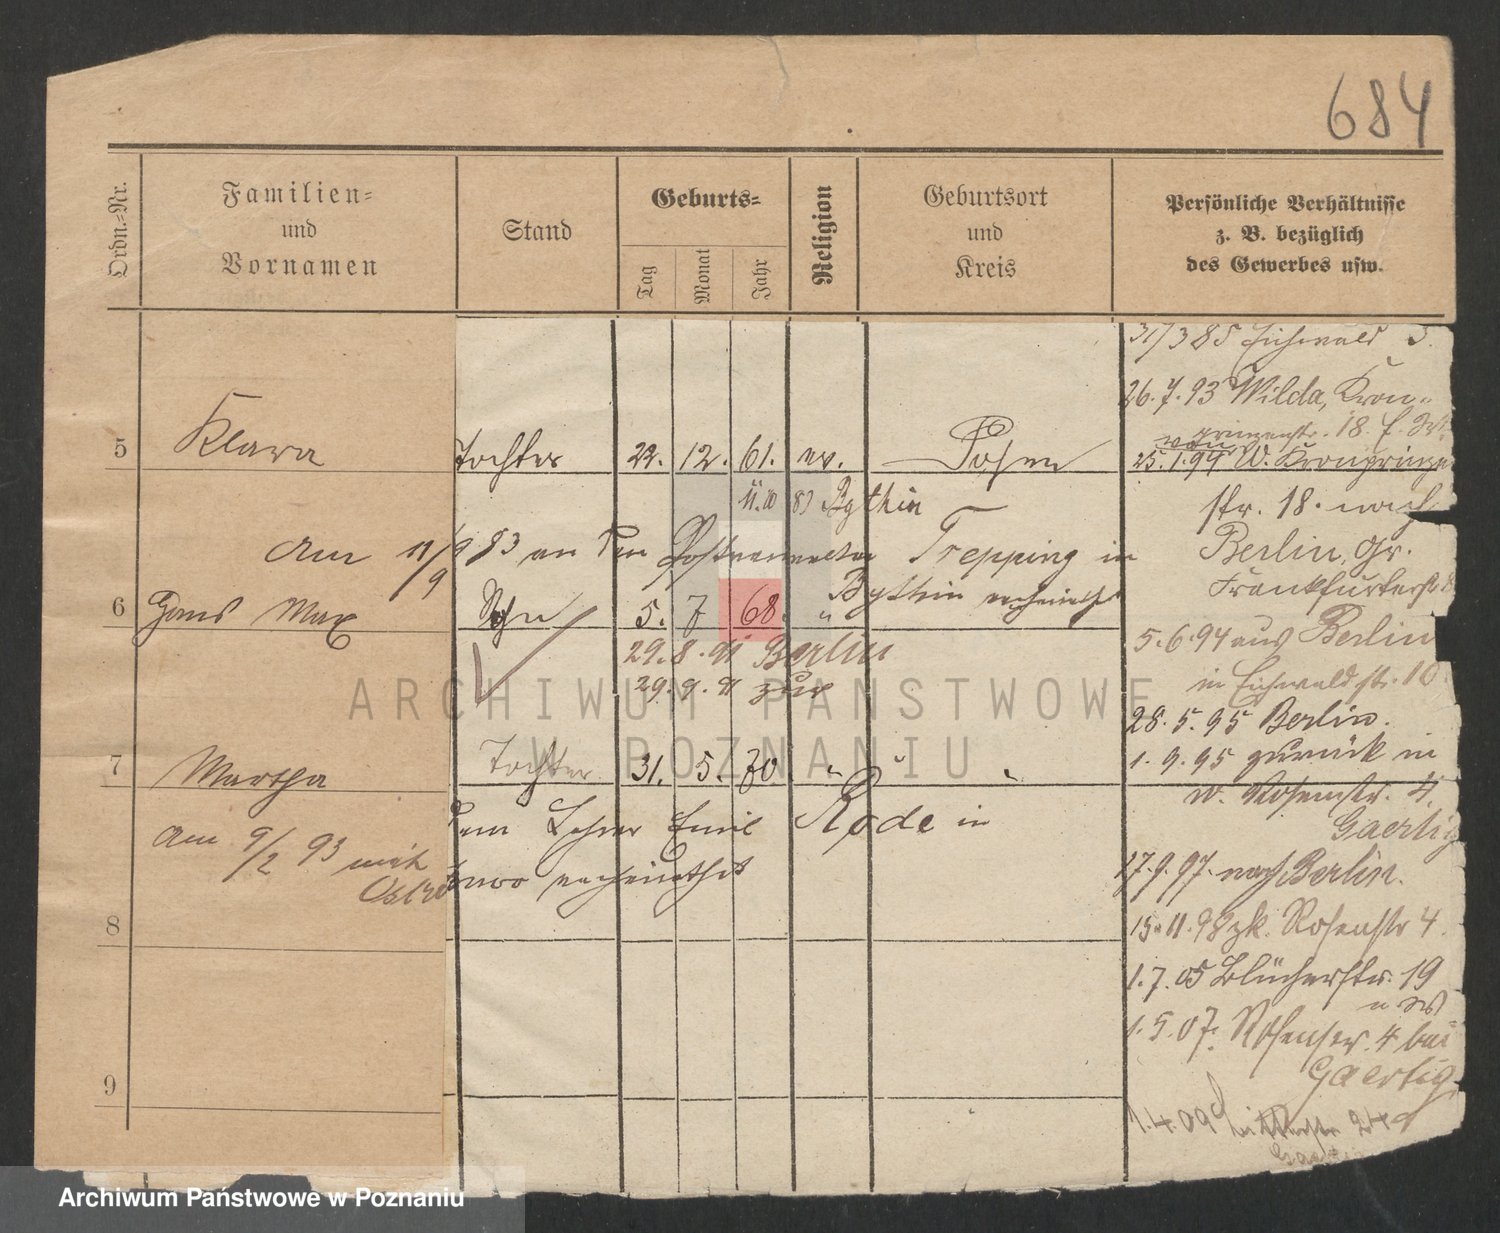 684
Ordn.-Nr.
Familien-
und
Vornamen
Stand
Geburts-
Tag
Monat
Jahr
Religion
Geburtsort
und
Kreis
Persönliche Verhältnisse
z. B. bezüglich
des Gewerbes usw.
31/3 85 Eichwald 3.
26.7.93 Wilda, Kron-
prinzenstr. 18.
5 Klara Tochter 22. 12. 61. ev. Posen
von
25.1.94 W. Kronprinzen
str. 18. nach
11.10 83 Bythin
Am 11/9 83 an den Postverwalter Trepping in
Bythin verheirathet
Berlin, Gr.
Frankfurterstr. 8
6 Hans Max Sohn 5. 7 68. "
5.6.94 aus Berlin
in Eichwaldstr. 10.
29.8.91 Berlin
29.9.91 zur
28.5.95 Berlin.
1.9.95 zurück in
7 Martha Tochter 31. 5. 70. " " "
W. Rosenstr. 4.
Gaertig
Am 9/2 93 mit dem Lehrer Emil Rode in
Ostrowo verheirathet
27.9.97. nach Berlin.
8
15.11.98 zk. Rosenstr 4.
1.7.05 Blücherstr. 19
1.5.07. Rosenstr. 4 bei
Gaertig
9
1.4.09 24
ARCHIWUM PAŃSTWOWE
W POZNANIU
Archiwum Państwowe w Poznaniu